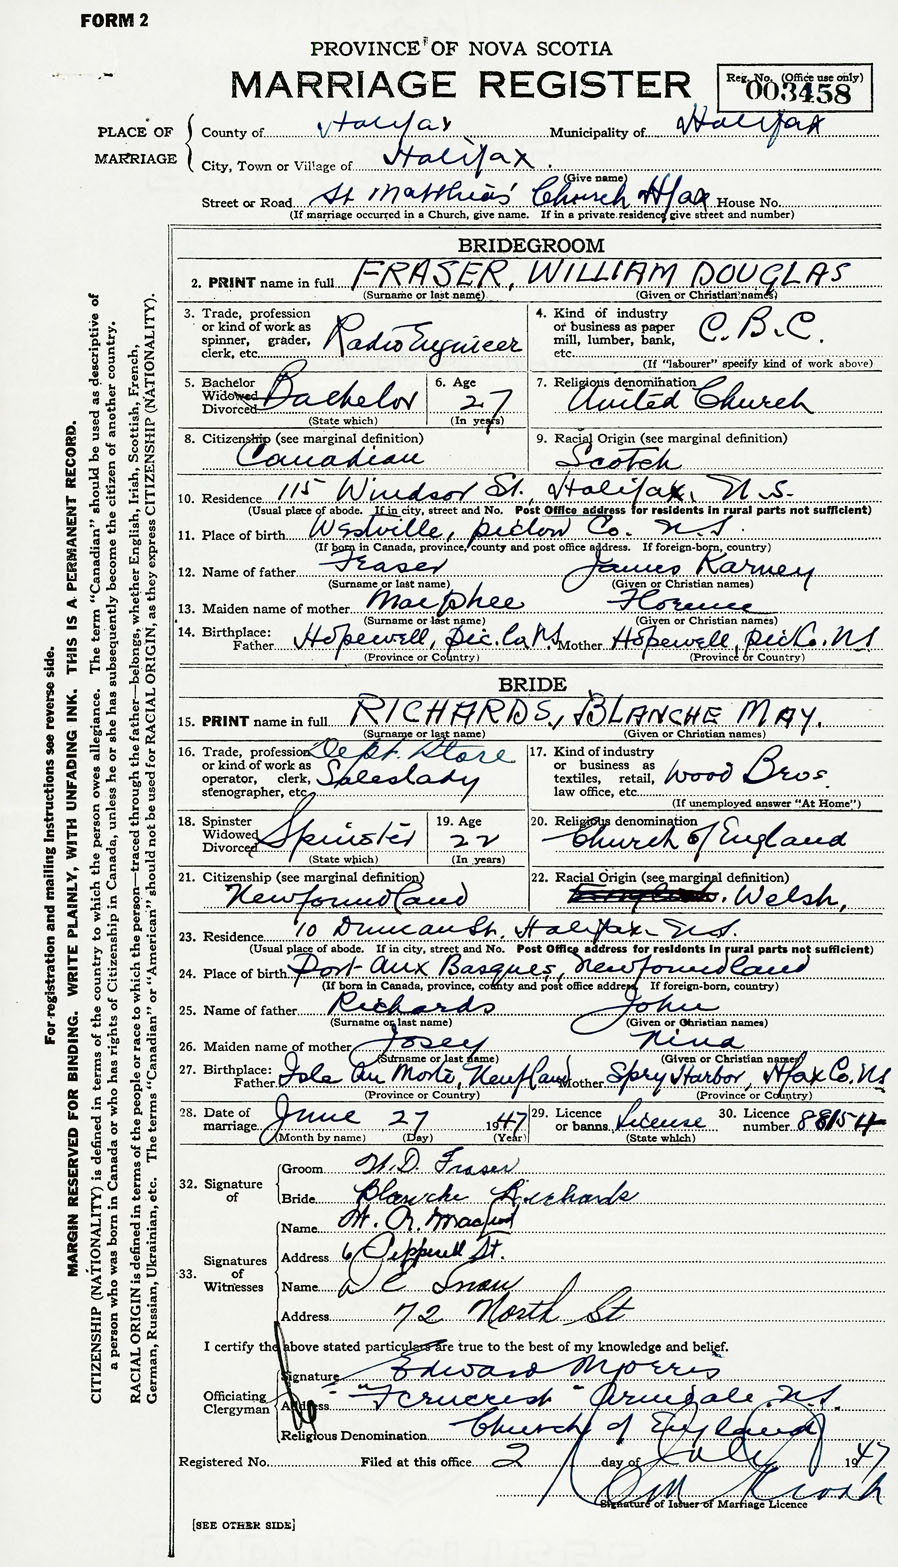 FORM 2
PROVINCE OF NOVA SCOTIA
MARRIAGE REGISTER
Reg. No. (Office use only)
003458
PLACE OF MARRIAGE
County of Halifax Municipality of Halifax
City, Town or Village of Halifax.
(Give name)
Street or Road St Matthias' Church Hfax House No.
(If marriage occurred in a Church, give name. If in a private residence give street and number)
BRIDEGROOM
2. PRINT name in full FRASER, WILLIAM DOUGLAS
(Surname or last name) (Given or Christian names)
3. Trade, profession or kind of work as spinner, grader, clerk, etc. Radio Engineer
4. Kind of industry or business as paper mill, lumber, bank, etc. C.B.C.
(If "labourer" specify kind of work above)
5. Bachelor Widowed Divorced Bachelor
(State which)
6. Age 27
(In years)
7. Religious denomination United Church
8. Citizenship (see marginal definition) Canadian
9. Racial Origin (see marginal definition) Scotch
10. Residence 115 Windsor St., Halifax, N.S.
(Usual place of abode. If in city, street and No. Post Office address for residents in rural parts not sufficient)
11. Place of birth Westville, Pictou Co. N.S.
(If born in Canada, province, county and post office address. If foreign-born, country)
12. Name of father Fraser James Karney
(Surname or last name) (Given or Christian names)
13. Maiden name of mother MacPhee Florence
(Surname or last name) (Given or Christian names)
14. Birthplace: Father Hopewell, Pic. Co. N.S. Mother Hopewell, Pic Co. NS
(Province or Country) (Province or Country)
BRIDE
15. PRINT name in full RICHARDS, BLANCHE MAY.
(Surname or last name) (Given or Christian names)
16. Trade, profession or kind of work as operator, clerk, stenographer, etc. Dept. Store Saleslady
17. Kind of industry or business as textiles, retail, law office, etc. Wood Bros
(If unemployed answer "At Home")
18. Spinster Widowed Divorced Spinster
(State which)
19. Age 22
(In years)
20. Religious denomination Church of England
21. Citizenship (see marginal definition) Newfoundland
22. Racial Origin (see marginal definition) Welsh,
23. Residence 10 Duncan St. Halifax N.S.
(Usual place of abode. If in city, street and No. Post Office address for residents in rural parts not sufficient)
24. Place of birth Port-Aux Basques, Newfoundland
(If born in Canada, province, county and post office address. If foreign-born, country)
25. Name of father Richards John
(Surname or last name) (Given or Christian names)
26. Maiden name of mother Josey Nina
(Surname or last name) (Given or Christian names)
27. Birthplace: Father Isle Au Morte, Newfland Mother Spry Harbor, Hfax Co. NS
(Province or Country) (Province or Country)
28. Date of marriage June 27 1947
(Month by name) (Day) (Year)
29. Licence or banns License
(State which)
30. Licence number 88154
32. Signature of
Groom W. D. Fraser
Bride Blanche Richards
33. Signatures of Witnesses
Name
Address 6 Pepperell St.
Name D C Snow
Address 72 North St
I certify the above stated particulars are true to the best of my knowledge and belief.
Officiating Clergyman
Signature Edward Morris
Address "Ferncrest" Armdale N.S.
Religious Denomination Church of England
Registered No. Filed at this office 2 day of July 1947
Signature of Issuer of Marriage Licence
[SEE OTHER SIDE]
For registration and mailing Instructions see reverse side.
MARGIN RESERVED FOR BINDING. WRITE PLAINLY, WITH UNFADING INK. THIS IS A PERMANENT RECORD.
CITIZENSHIP (NATIONALITY) is defined in terms of the country to which the person owes allegiance. The term "Canadian" should be used as descriptive of
a person who was born in Canada or who has rights of Citizenship in Canada, unless he or she has subsequently become the citizen of another country.
RACIAL ORIGIN is defined in terms of the people or race to which the person—traced through the father—belongs, whether English, Irish, Scottish, French,
German, Russian, Ukrainian, etc. The terms "Canadian" or "American" should not be used for RACIAL ORIGIN, as they express CITIZENSHIP (NATIONALITY).